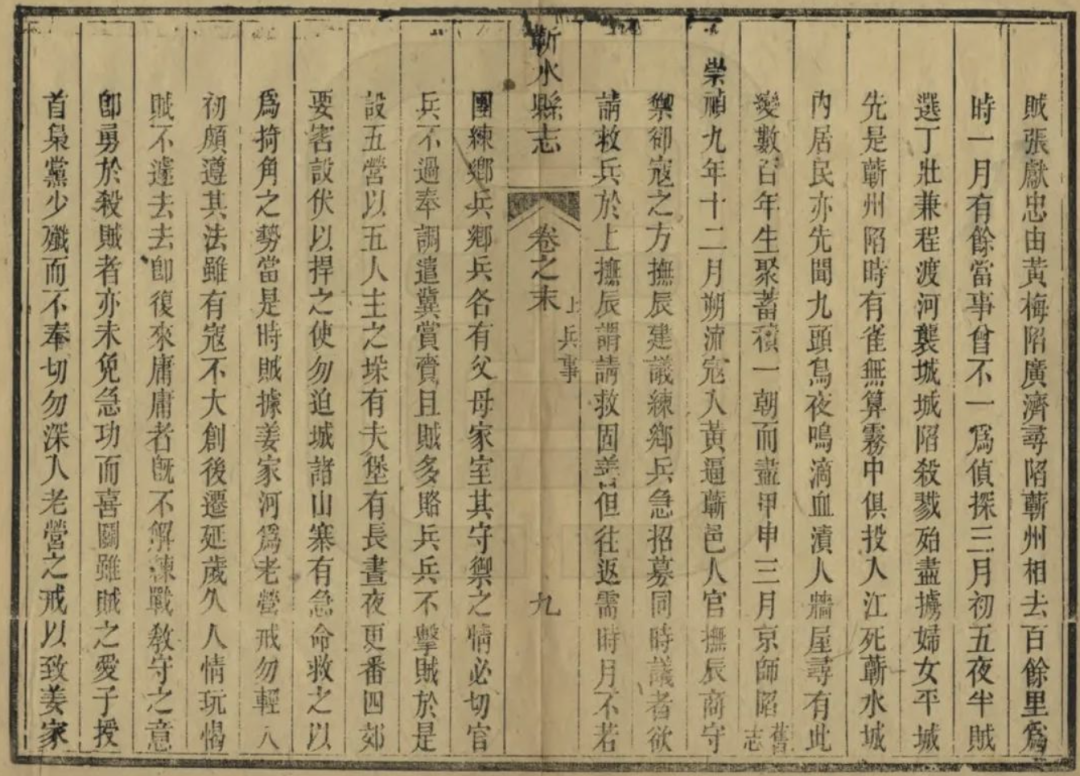 賊張獻忠由黃梅陷廣濟尋陷蘄州相去百餘里爲
時一月有餘當事曾不一爲偵探三月初五夜半賊
選丁壯兼程渡河襲城城陷殺戮殆盡擄婦女平城
先是蘄州陷時有雀無算霧中俱投入江死蘄水城
內居民亦先聞九頭鳥夜鳴滴血漬人牆屋尋有此
變數百年生聚蓄積一朝而盡甲申三月京師陷舊志
崇禎九年十二月朔流寇入黃逼蘄邑人官撫辰商守
禦卻寇之方撫辰建議練鄉兵急招募同時議者欲
請救兵於上撫辰謂請救固善但往返需時月不若
蘄水縣志 卷之末 上兵事 九
團練鄉兵鄉兵各有父母家室其守禦之情必切官
兵不過奉調遣冀賞賚且賊多賂兵兵不擊賊於是
設五營以五人主之垛有夫堡有長晝夜更番四郊
要害設伏以捍之使勿迫城諸山寨有急命救之以
爲掎角之勢當是時賊據姜家河爲老營戒勿輕入
初頗遵其法雖有寇不大創後遷延歲久人情玩愒
賊不遽去去卽復來庸庸者旣不解練戰教守之意
卽勇於殺賊者亦未免急功而喜鬭雖賊之愛子授
首梟黨少殲而不奉切勿深入老營之戒以致姜家